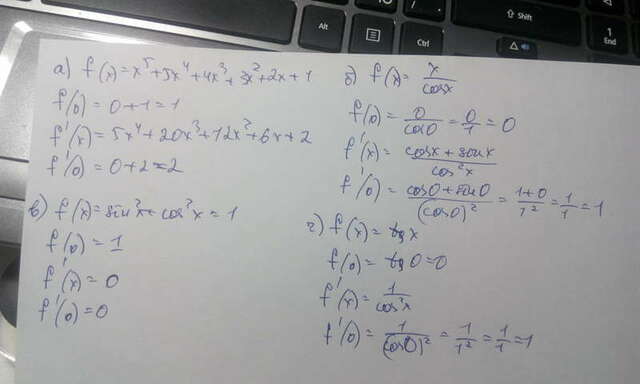 Alt
Ctrl
⇧ Shift
1
End
а) f(x)=x⁵+5x⁴+4x³+3x²+2x+1
f(0)=0+1=1
f'(x)=5x⁴+20x³+12x²+6x+2
f'(0)=0+2=2
б) f(x)=x/cosx
f(0)=0/cos0=0/1=0
f'(x)=cosx+sinx/cos²x
f'(0)=cos0+sin0/(cos0)²=1+0/1²=1/1=1
в) f(x)=sin²x+cos²x=1
f(0)=1
f'(x)=0
f'(0)=0
г) f(x)=tgx
f(0)=tg0=0
f'(x)=1/cos²x
f'(0)=1/(cos0)²=1/1²=1/1=1